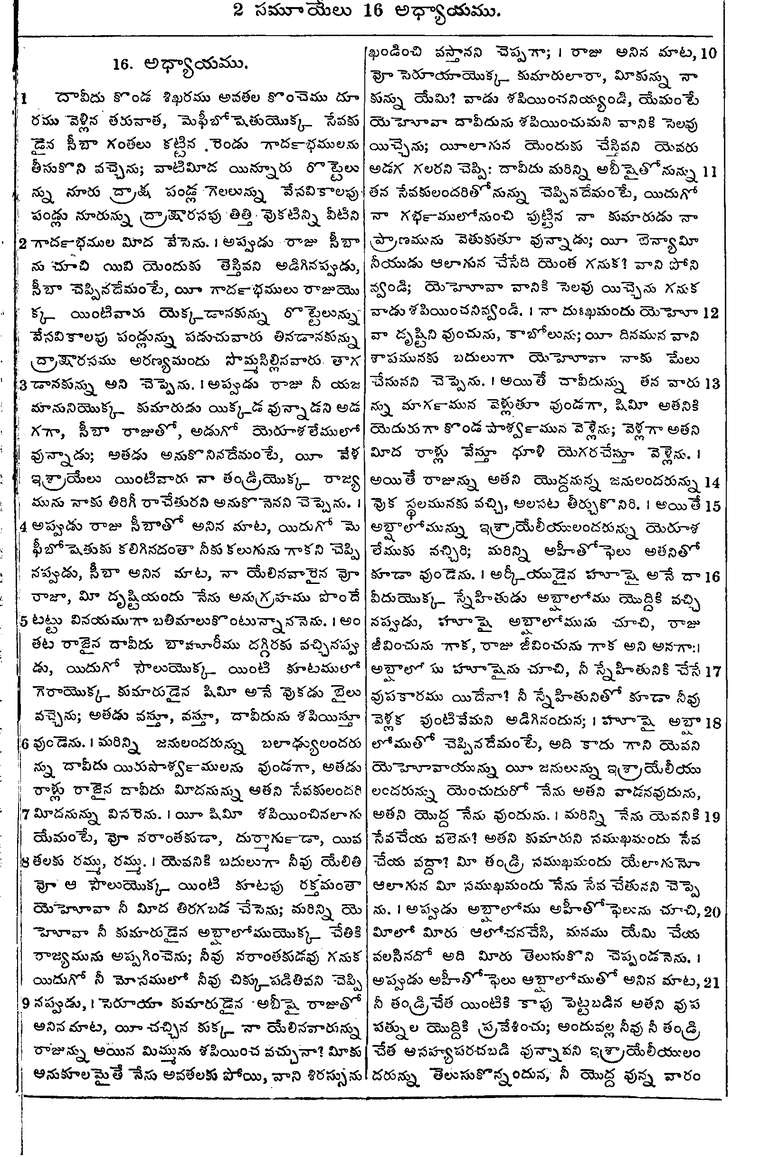 2 సమూయేలు 16 అధ్యాయము.
16. అధ్యాయము.
1 దావీదు కొండ శిఖరము అవతల కొంచెము దూ
రము వెళ్లిన తరువాత, మెఫీబోషెతుయొక్క సేవకు
డైన సీబా గంతలు కట్టిన రెండు గార్దభములను
తీసుకొని వచ్చెను; వాటిమీద యిన్నూరు రొట్టెలు
న్ను నూరు ద్రాక్ష పండ్ల గెలలున్ను వేసవికాలపు
పండ్లు నూరున్ను ద్రాక్షారసపు తిత్తి వొకటిన్ని వీటిని
2 గార్దభముల మీద వేసెను. । అప్పుడు రాజు సీబా
ను చూచి యివి యెందుకు తెస్తివని అడిగినప్పుడు,
సీబా చెప్పినదేమంటే, యీ గార్దభములు రాజుయొ
క్క యింటివారు యెక్కడానకున్ను రొట్టెలున్ను
వేసవికాలపు పండ్లున్ను పడుచువారు తినడానకున్ను
ద్రాక్షారసము అరణ్యమందు సొమ్మసిల్లినవారు తాగ
3 డానకున్ను అని చెప్పెను. । అప్పుడు రాజు నీ యజ
మానునియొక్క కుమారుడు యిక్కడ వున్నాడని అడ
గగా, సీబా రాజుతో, అడుగో యెరూశలేములో
వున్నాడు; అతడు అనుకొనినదేమంటే, యీ వేళ
ఇశ్రాయేలు యింటివారు నా తండ్రియొక్క రాజ్య
మును నాకు తిరిగీ రాచేతురని అనుకొనెనని చెప్పెను. ।
4 అప్పుడు రాజు సీబాతో అనిన మాట, యిదుగో మె
ఫీబోషెతుకు కలిగినదంతా నీకు కలుగును గాకని చెప్పి
నప్పుడు, సీబా అనిన మాట, నా యేలినవారైన వో
రాజా, మీ దృష్టియందు నేను అనుగ్రహము పొందే
5 టట్టు వినయముగా బతిమాలుకొంటున్నాననెను. । అం
తట రాజైన దావీదు బాహూరీము దగ్గిరకు వచ్చినప్పు
డు, యిదుగో సౌలుయొక్క యింటి కూటములో
గెరాయొక్క కుమారుడైన షిమీ అనే వొకడు బైలు
వచ్చెను; అతడు వస్తూ, వస్తూ, దావీదును శపియిస్తూ
6 వుండెను. । మరిన్ని జనులందరున్ను బలాఢ్యులందరు
న్ను దావీదు యిరుపార్శ్వములను వుండగా, అతడు
రాళ్లు రాజైన దావీదు మీదనున్ను ఆతని సేవకులందరి
7 మీదనున్ను విసరెను. । యీ షిమీ శపియించినలాగు
యేమంటే, వో నరాంతకుడా, దుర్మార్గుడా, యివ
8 తలకు రమ్ము, రమ్ము. । యెవనికి బదులుగా నీవు యేలితి
వో ఆ సౌలుయొక్క యింటి కూటపు రక్తమంతా
యెహోవా నీ మీద తిరగబడ చేసెను; మరిన్ని యె
హోవా నీ కుమారుడైన అబ్షాలోముయొక్క చేతికి
రాజ్యమును అప్పగించెను; నీవు నరాంతకుడవు గనుక
యిదుగో నీ మోసములో నీవు చిక్కుపడితివని చెప్పి
9 నప్పుడు, । సెరూయా కుమారుడైన అబీషై రాజుతో
అనిన మాట, యీ చచ్చిన కుక్క నా యేలినవారున్ను
రాజున్ను అయిన మిమ్మును శపియించ వచ్చునా? మీకు
అనుకూలమైతే నేను అవతలకు పోయి, వాని శిరస్సును
ఖండించి వస్తానని చెప్పగా; । రాజు అనిన మాట, 10
వో సెరూయాయొక్క కుమారులారా, మీకున్ను నా
కున్ను యేమి? వాడు శపియించనియ్యండి, యేమంటే
యెహోవా దావీదును శపియించుమని వానికి సెలవు
యిచ్చెను; యీలాగున యెందుకు చేస్తివని యెవరు
అడగ గలరని చెప్పి: దావీదు మరిన్ని అబీషైతోనున్ను 11
తన సేవకులందరితోనున్ను చెప్పినదేమంటే, యిదుగో
నా గర్భములోనుంచి పుట్టిన నా కుమారుడు నా
ప్రాణమును వెతుకుతూ వున్నాడు; యీ బెన్యామీ
నీయుడు ఆలాగున చేసేది యెంత గనుక? వాని పోని
వ్వండి; యెహోవా వానికి సెలవు యిచ్చెను గనుక
వాడు శపియించనివ్వండి. । నా దుఃఖమందు యెహో 12
వా దృష్టిని వుంచును, కాబోలును; యీ దినమున వాని
శాపమునకు బదులుగా యెహోవా నాకు మేలు
చేసునని చెప్పెను. । అయితే దావీదున్ను తన వారు 13
న్ను మార్గమున వెళ్లుతూ వుండగా, షిమీ అతనికి
యెదురుగా కొండ పార్శ్వమున వెళ్లెను; వెళ్లగా అతని
మీద రాళ్లు వేస్తూ ధూళి యెగరచేస్తూ వెళ్లెను. ।
అయితే రాజున్ను అతని యొద్దనున్న జనులందరున్ను 14
వొక స్థలమునకు వచ్చి, అలసట తీర్చుకొనిరి. । అయితే 15
అబ్షాలోమున్ను ఇశ్రాయేలీయులందరున్ను యెరూశ
లేముకు వచ్చిరి; మరిన్ని అహీతోఫెలు అతనితో
కూడా వుండెను. । అర్కీయుడైన హూషై అనే దా 16
వీదుయొక్క స్నేహితుడు అబ్షాలోము యొద్దికి వచ్చి
నప్పుడు, హూషై అబ్షాలోమును చూచి, రాజు
జీవించును గాక, రాజు జీవించును గాక అని అనగా: ।
అబ్షాలోము హూషైను చూచి, నీ స్నేహితునికి చేసే 17
వుపకారము యిదేనా? నీ స్నేహితునితో కూడా నీవు
వెళ్లక వుంటివేమని అడిగినందున; । హూషై అబ్షా 18
లోముతో చెప్పినదేమంటే, అది కాదు గాని యెవని
యెహోవాయున్ను యీ జనులున్ను ఇశ్రాయేలీయు
లందరున్ను యెంచుదురో నేను అతని వాడనవుదును,
అతని యొద్ద నేను వుందును. । మరిన్ని నేను యెవనికి 19
సేవచేయ వలెను? అతని కుమారుని సముఖమందు సేవ
చేయ వద్దా? మీ తండ్రి సముఖమందు యేలాగునో
ఆలాగున మీ సముఖమందు నేను సేవ చేతునని చెప్పె
ను. । అప్పుడు అబ్షాలోము అహీతోఫెలును చూచి, 20
మీలో మీరు ఆలోచనచేసి, మనము యేమి చేయ
వలసినదో అది మీరు తెలుసుకొని చెప్పండనెను. ।
అప్పుడు అహీతోఫెలు ఆబ్షాలోముతో అనిన మాట, 21
నీ తండ్రిచేత యింటికి కాపు పెట్టబడిన అతని వుప
పత్నుల యొద్దికి ప్రవేశించు; అందువల్ల నీవు నీ తండ్రి
చేత అసహ్యపరచబడి వున్నావని ఇశ్రాయేలీయులం
దరున్ను తెలుసుకొన్నందున, నీ యొద్ద వున్న వారం